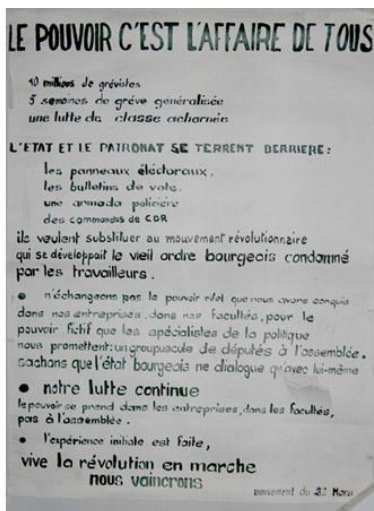 LE POUVOIR C'EST L'AFFAIRE DE TOUS
10 millions de grévistes
5 semaines de grève généralisée
une lutte de classe acharnée
L'ETAT ET LE PATRONAT SE TERRENT DERRIERE:
les panneaux éléctoraux.
les bulletins de vote.
une armada policière
des commandos de CDR
ils veulent substituer au mouvement révolutionnaire
qui se développait le vieil ordre bourgeois condamné
par les travailleurs.
• n'échangeons pas le pouvoir réel que nous avons conquis
dans nos entreprises, dans nos facultés, pour le
pouvoir fictif que les spécialistes de la politique
nous promettent: un groupuscule de députés à l'assemblée.
sachons que l'état bourgeois ne dialogue qu'avec lui-même
• notre lutte continue
le pouvoir se prend dans les entreprises, dans les facultés,
pas à l'assemblée.
• l'expérience initiale est faite,
vive la révolution en marche
nous vaincrons
mouvement du 22 Mars